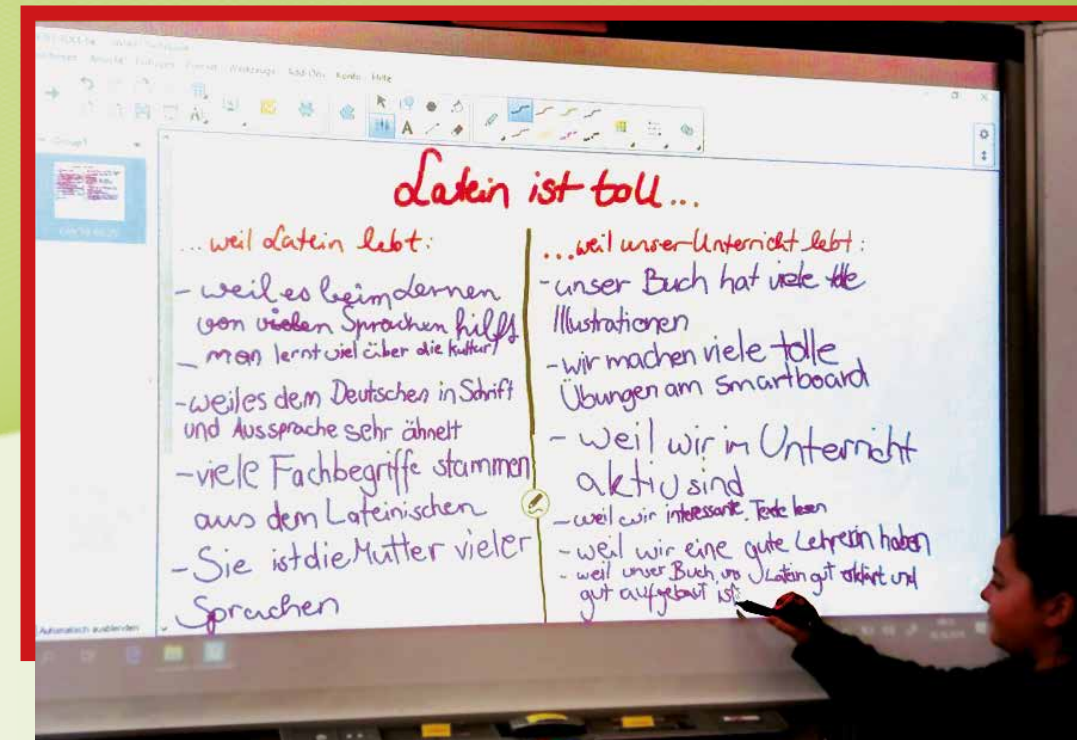 Ansicht Einfügen Format Werkzeuge Add-Ons Konto Hilfe
Group1
Latein ist toll...
... weil Latein lebt:
- weil es beim Lernen
von vielen Sprachen hilft
- man lernt viel über die Kultur
- weil es dem Deutschen in Schrift
und Aussprache sehr ähnelt
- viele Fachbegriffe stammen
aus dem Lateinischen
- Sie ist die Mutter vieler
Sprachen
...weil unser Unterricht lebt:
- unser Buch hat viele tolle
Illustrationen
- wir machen viele tolle
Übungen am Smartboard
- weil wir im Unterricht
aktiv sind
- weil wir interessante Texte lesen
- weil wir eine gute Lehrerin haben
- weil unser Buch uns Latein gut erklärt und
gut aufgebaut ist
Automatisch ausblenden